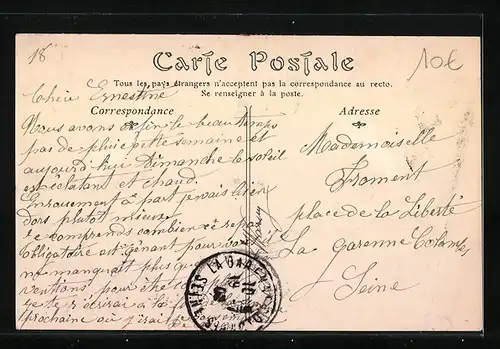 18
10€
Carte Postale
Tous les pays étrangers n'acceptent pas la correspondance au recto.
Se renseigner à la poste.
Correspondance
Chère Ernestine
Nous avons enfin le beau temps
pas de pluie cette semaine et
aujourd'hui Dimanche le soleil
est éclatant et chaud.
Enrouement à part je vais bien
dors plutôt mieux.
Je comprends combien ce repos
obligatoire est gênant pour vous il
ne manquait plus que
pour
je te à la
prochaine où j'irai
Adresse
Mademoiselle
Froment
place de la Liberté
La Garenne Colombes
Seine
LA GARENNE
SEINE